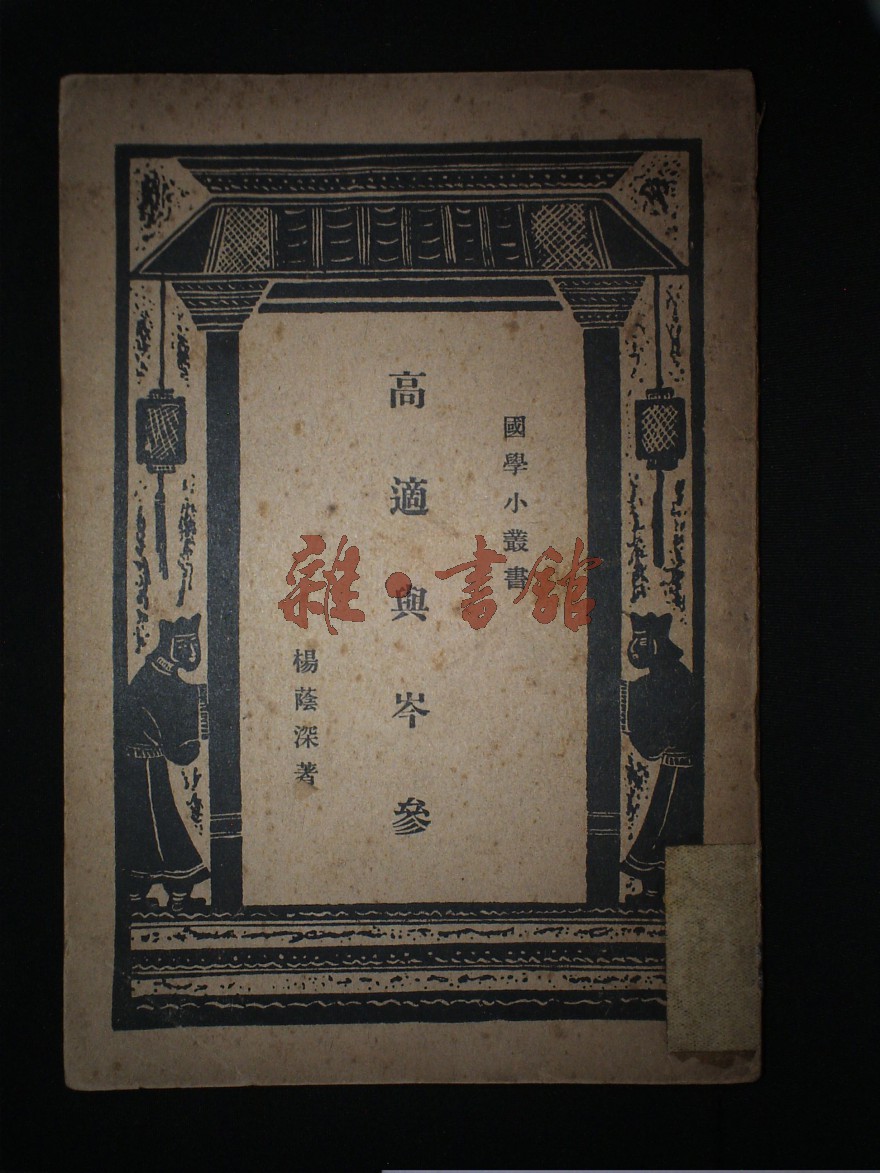 國學小叢書
高適與岑參
楊蔭深著
雜·書館